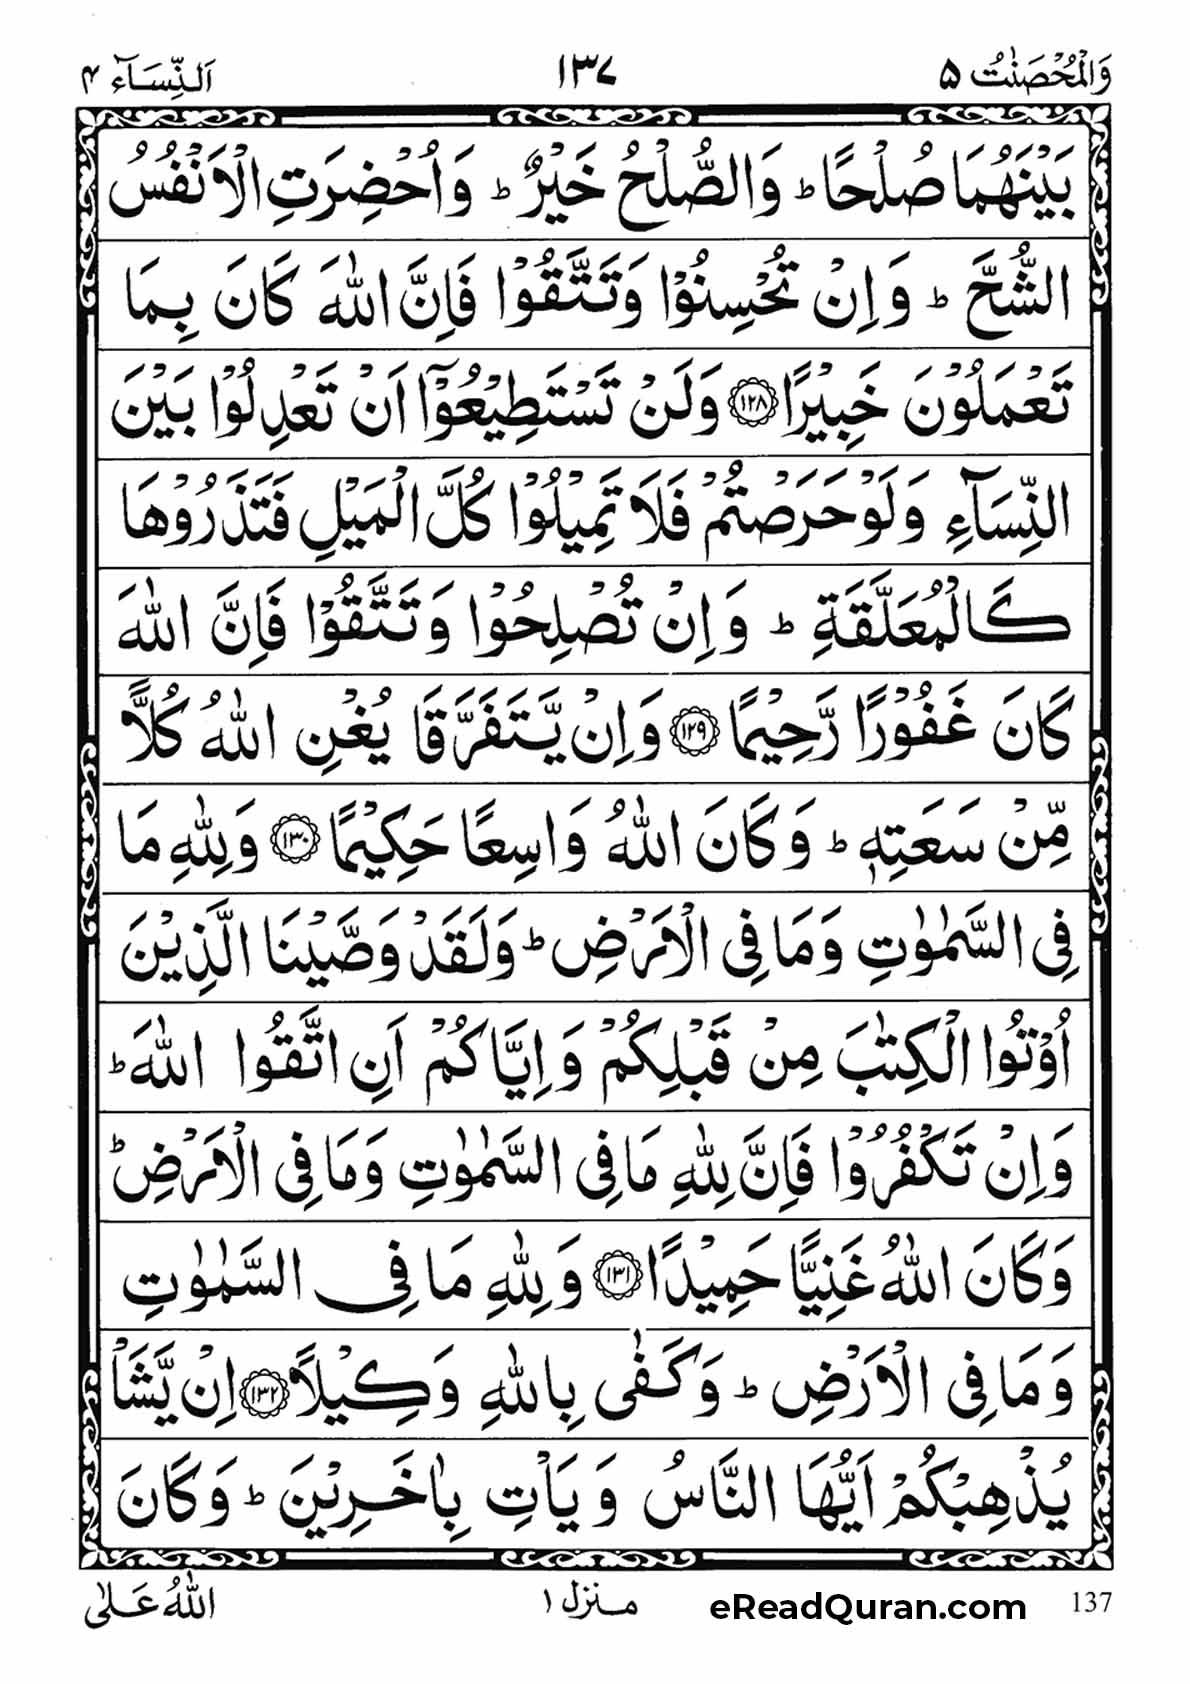 وَالْمُحْصَنٰتُ ۵
۱۳۷
اَلنِّسَآء ۴
بَيْنَهُمَا صُلْحًا ؕ وَالصُّلْحُ خَيْرٌ ؕ وَاُحْضِرَتِ الْاَنْفُسُ
الشُّحَّ ؕ وَاِنْ تُحْسِنُوْا وَتَتَّقُوْا فَاِنَّ اللّٰهَ كَانَ بِمَا
تَعْمَلُوْنَ خَبِيْرًا ۱۲۸ وَلَنْ تَسْتَطِيْعُوْۤا اَنْ تَعْدِلُوْا بَيْنَ
النِّسَآءِ وَلَوْ حَرَصْتُمْ فَلَا تَمِيْلُوْا كُلَّ الْمَيْلِ فَتَذَرُوْهَا
كَالْمُعَلَّقَةِ ؕ وَاِنْ تُصْلِحُوْا وَتَتَّقُوْا فَاِنَّ اللّٰهَ
كَانَ غَفُوْرًا رَّحِيْمًا ۱۲۹ وَاِنْ يَّتَفَرَّقَا يُغْنِ اللّٰهُ كُلًّا
مِّنْ سَعَتِهٖ ؕ وَكَانَ اللّٰهُ وَاسِعًا حَكِيْمًا ۱۳۰ وَلِلّٰهِ مَا
فِى السَّمٰوٰتِ وَمَا فِى الْاَرْضِ ؕ وَلَقَدْ وَصَّيْنَا الَّذِيْنَ
اُوْتُوا الْكِتٰبَ مِنْ قَبْلِكُمْ وَاِيَّاكُمْ اَنِ اتَّقُوا اللّٰهَ ؕ
وَاِنْ تَكْفُرُوْا فَاِنَّ لِلّٰهِ مَا فِى السَّمٰوٰتِ وَمَا فِى الْاَرْضِ ؕ
وَكَانَ اللّٰهُ غَنِيًّا حَمِيْدًا ۱۳۱ وَلِلّٰهِ مَا فِى السَّمٰوٰتِ
وَمَا فِى الْاَرْضِ ؕ وَكَفٰى بِاللّٰهِ وَكِيْلًا ۱۳۲ اِنْ يَّشَاْ
يُذْهِبْكُمْ اَيُّهَا النَّاسُ وَيَاْتِ بِاٰخَرِيْنَ ؕ وَكَانَ
137
eReadQuran.com
منزل ۱
اللّٰهُ عَلٰى